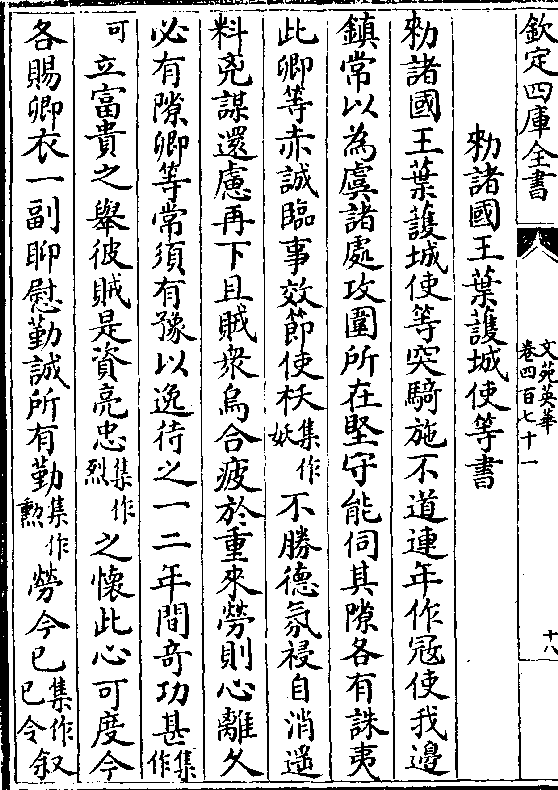 欽定四庫全書
文苑英華
卷四百七十一
十八
勑諸國王葉護城使等書
勑諸國王葉護城使等突騎施不道連年作冦使我邊
鎮常以為虞諸處攻圍所在堅守能伺其隙各有誅夷
此卿等赤誠臨事效節使祅集作妖不勝德氛祲自消遥
料兇謀還慮再下且賊衆烏合疲於重來勞則心離久
必有隙卿等常須有豫以逸待之一二年間奇功甚集作
可立富貴之舉彼賊是資亮忠集作烈之懷此心可度今
各賜卿衣一副聊慰勤誠所有勤集作勲勞今已集作已令叙